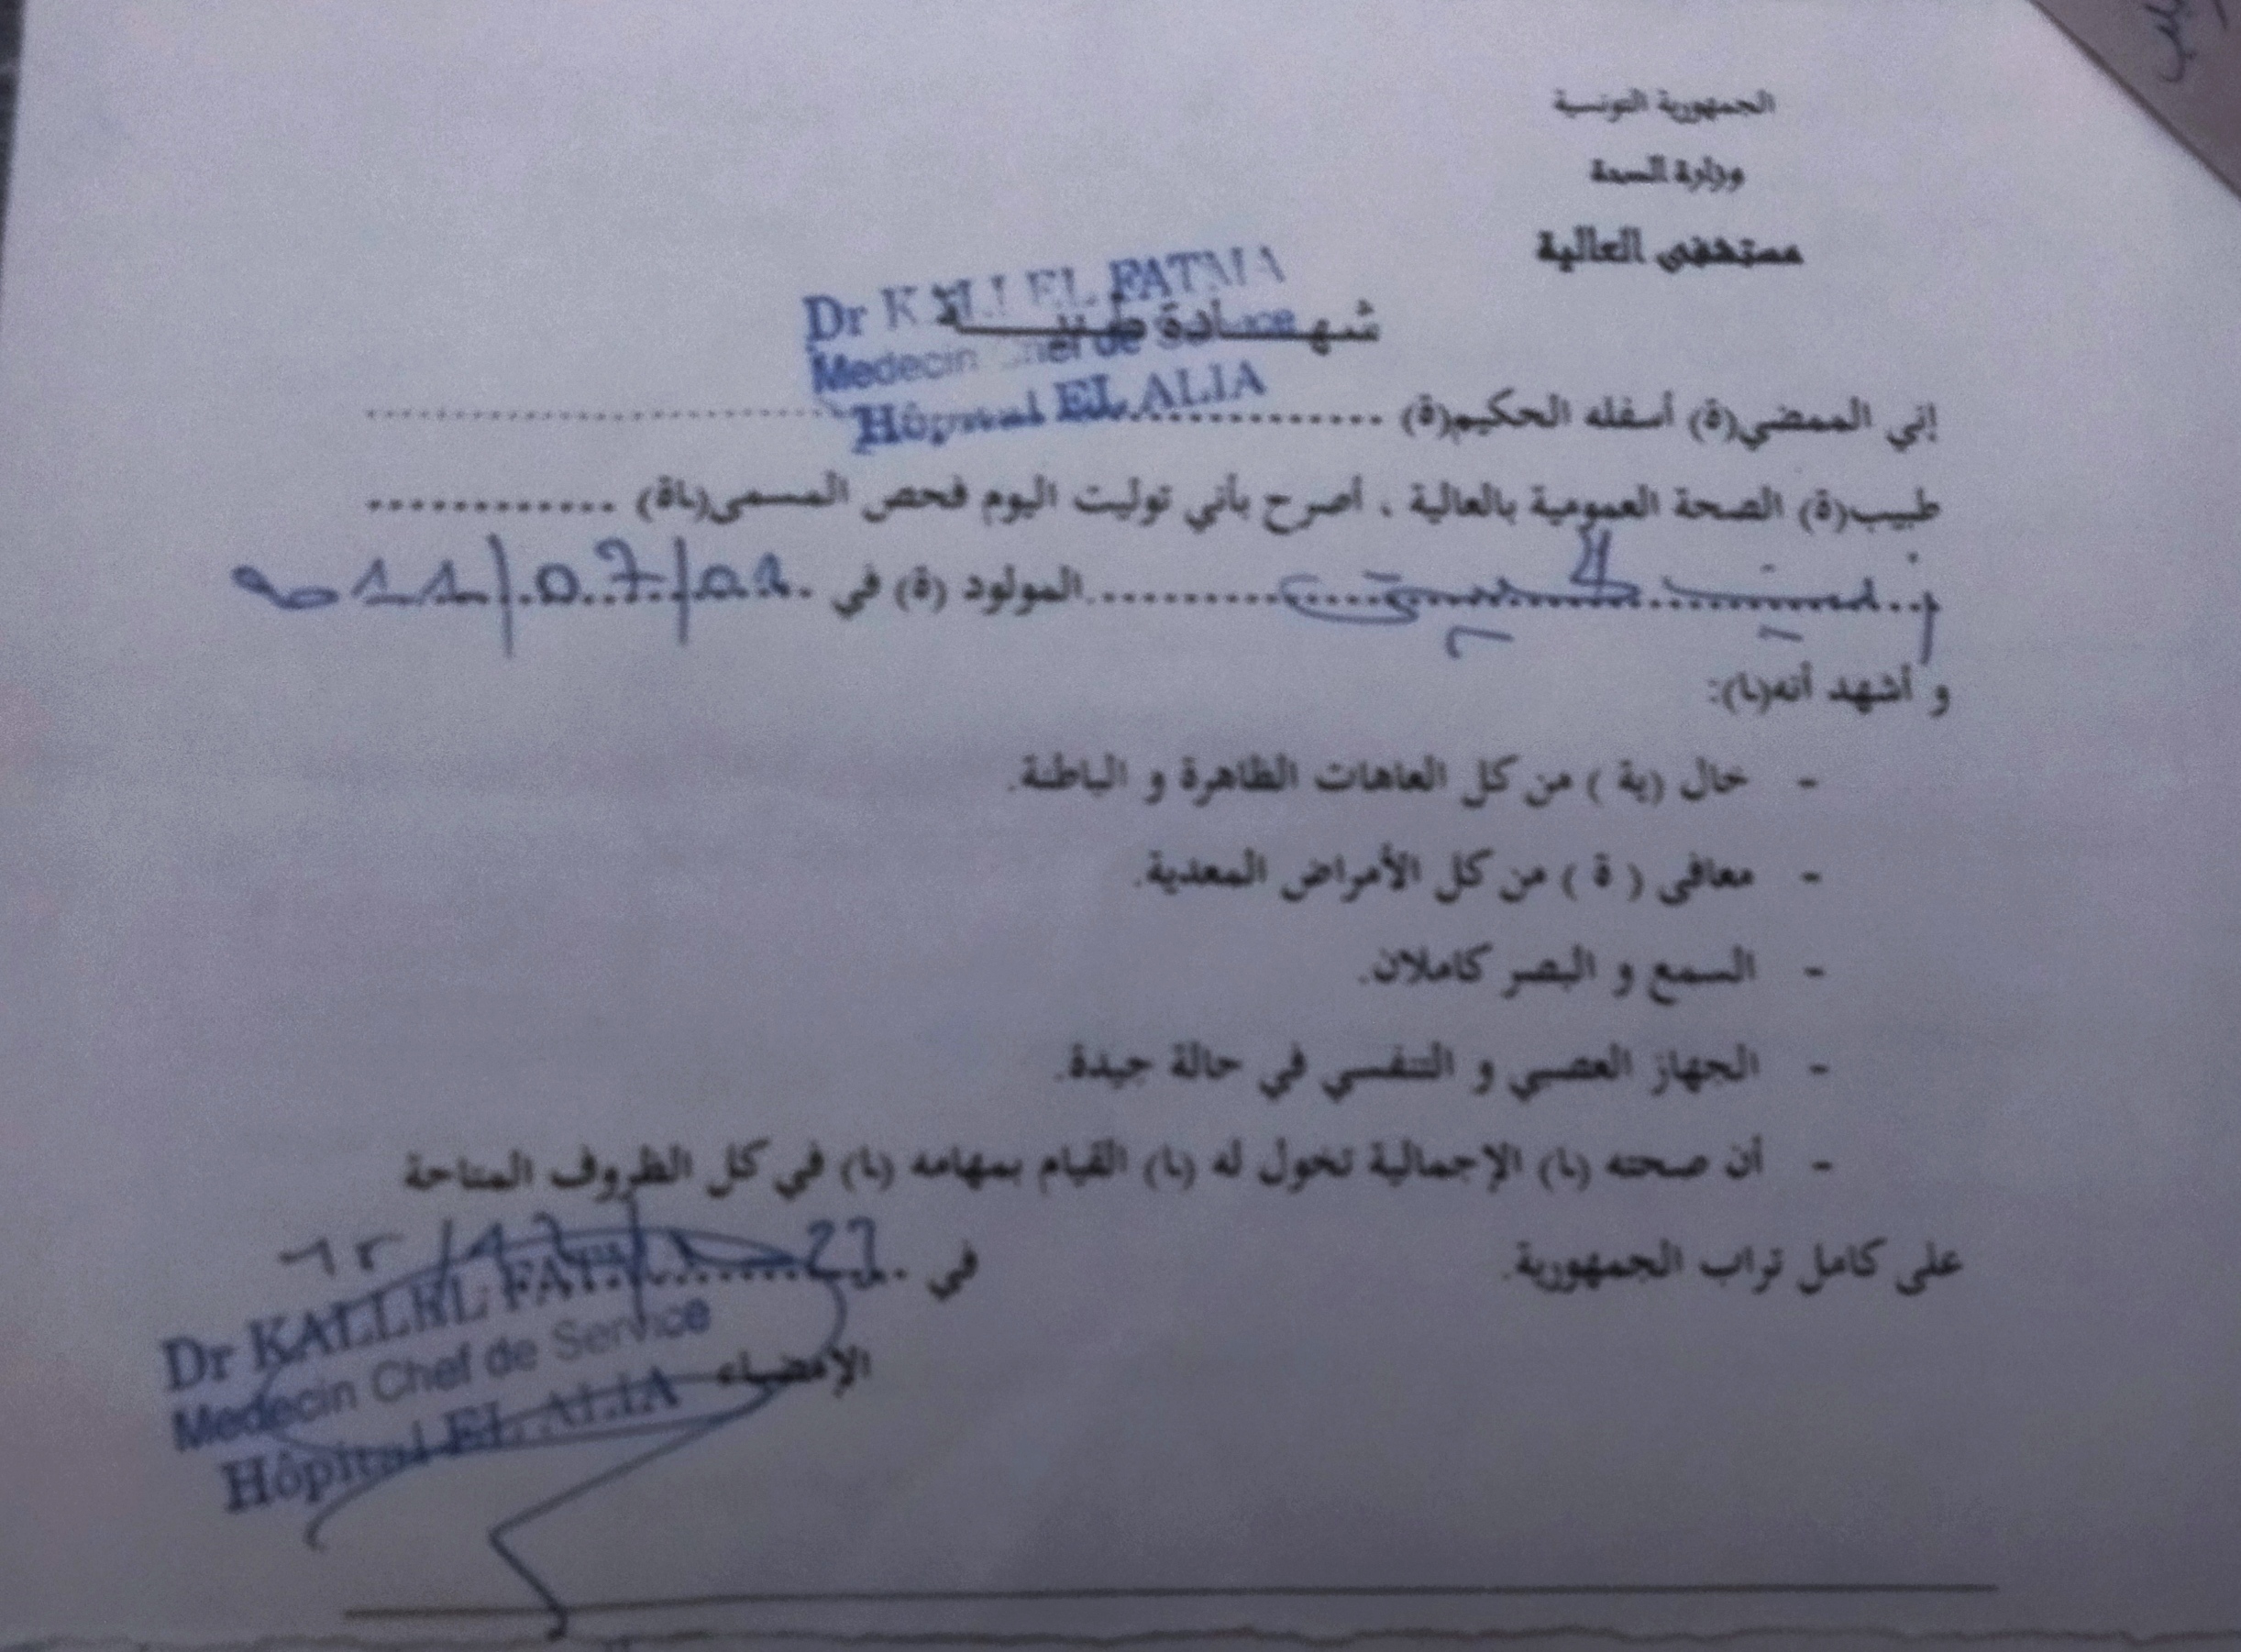 الجمهورية التونسية
وزارة الصحة
مستشفى العالية
شهادة طبية
Dr KALLEL FATMA
Medecin Chef de Service
Hôpital EL ALIA
إني الممضي(ة) أسفله الحكيم(ة) ........................................
طبيب(ة) الصحة العمومية بالعالية ، أصرح بأني توليت اليوم فحص المسمى(باة) .............
المولود (ة) في
و أشهد أنه(ا):
- خال (ية ) من كل العاهات الظاهرة و الباطنة.
- معافى ( ة ) من كل الأمراض المعدية.
- السمع و البصر كاملان.
- الجهاز العصبي و التنفسي في حالة جيدة.
- أن صحته (ا) الإجمالية تخول له (ا) القيام بمهامه (ا) في كل الظروف المتاحة
على كامل تراب الجمهورية. في
الإمضاء
Dr KALLEL FATMA
Medecin Chef de Service
Hôpital EL ALIA